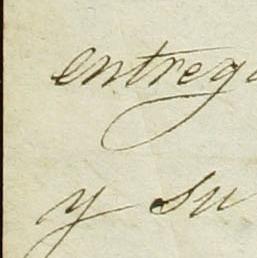 entrega
y su